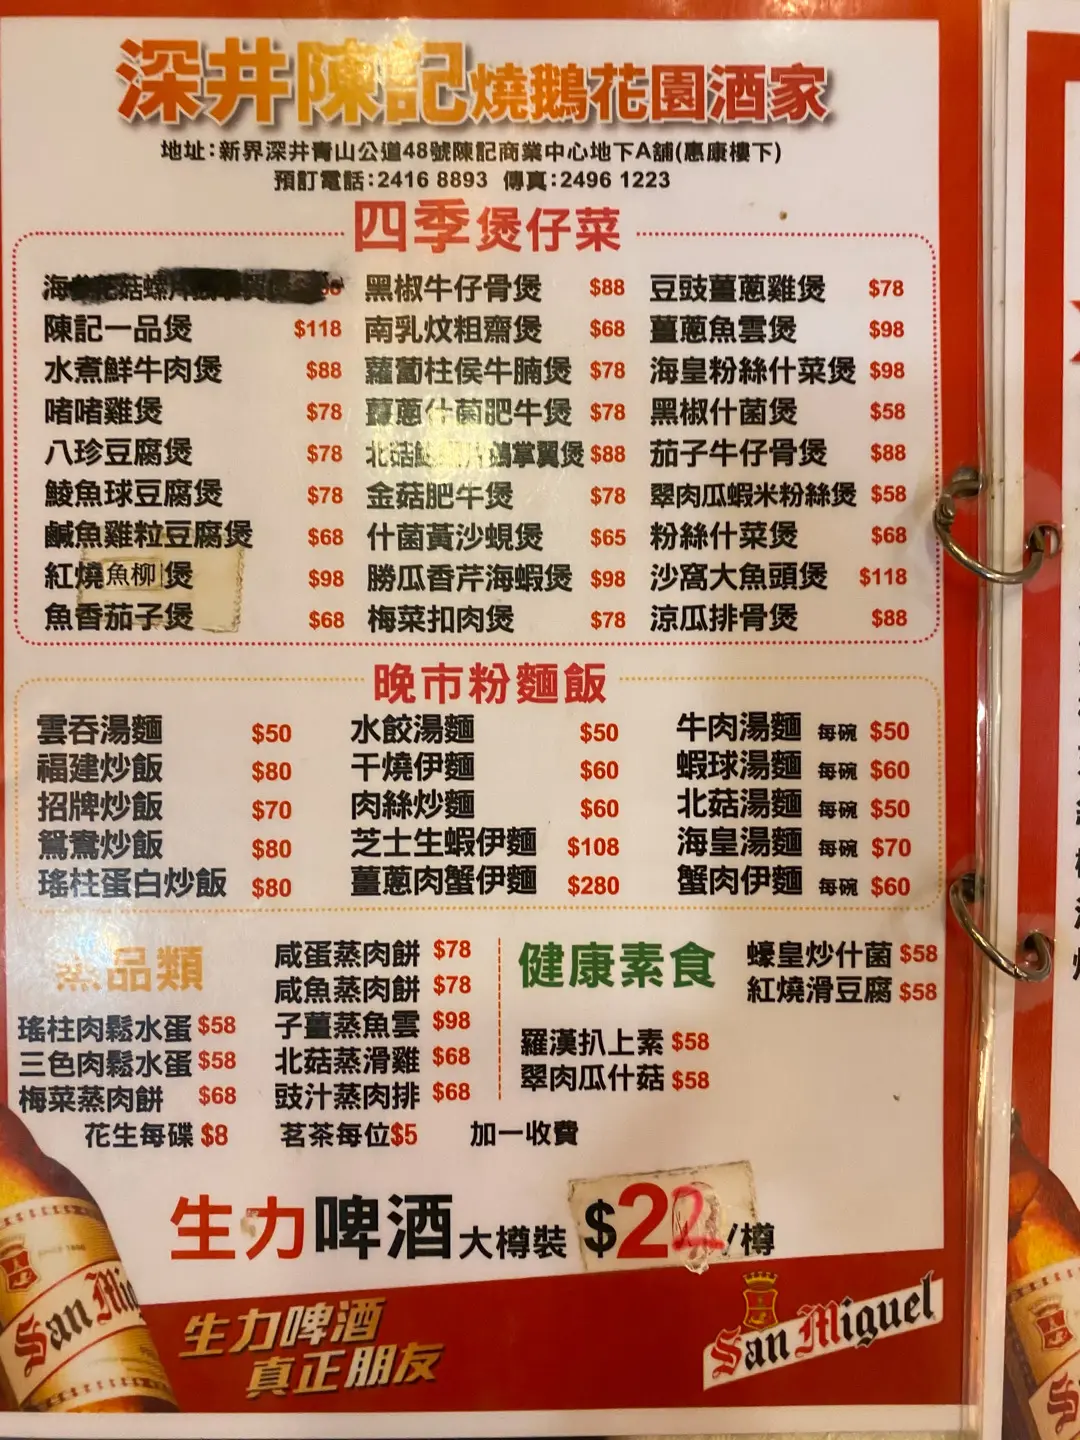 深井陳記燒鵝花園酒家
地址:新界深井青山公道48號陳記商業中心地下A舖(惠康樓下)
預訂電話:2416 8893 傳真:2496 1223
四季煲仔菜
陳記一品煲 $118
水煮鮮牛肉煲 $88
啫啫雞煲 $78
八珍豆腐煲 $78
鯪魚球豆腐煲 $78
鹹魚雞粒豆腐煲 $68
紅燒魚柳煲 $98
魚香茄子煲 $68
黑椒牛仔骨煲 $88
南乳炆粗齋煲 $68
蘿蔔柱侯牛腩煲 $78
薑蔥什菌肥牛煲 $78
北菇 鵝掌翼煲 $88
金菇肥牛煲 $78
什菌黃沙蜆煲 $65
勝瓜香芹海蝦煲 $98
梅菜扣肉煲 $78
豆豉薑蔥雞煲 $78
薑蔥魚雲煲 $98
海皇粉絲什菜煲 $98
黑椒什菌煲 $58
茄子牛仔骨煲 $88
翠肉瓜蝦米粉絲煲 $58
粉絲什菜煲 $68
沙窩大魚頭煲 $118
涼瓜排骨煲 $88
晚市粉麵飯
雲吞湯麵 $50
福建炒飯 $80
招牌炒飯 $70
鴛鴦炒飯 $80
瑤柱蛋白炒飯 $80
水餃湯麵 $50
干燒伊麵 $60
肉絲炒麵 $60
芝士生蝦伊麵 $108
薑蔥肉蟹伊麵 $280
牛肉湯麵 每碗 $50
蝦球湯麵 每碗 $60
北菇湯麵 每碗 $50
海皇湯麵 每碗 $70
蟹肉伊麵 每碗 $60
蒸品類
瑤柱肉鬆水蛋 $58
三色肉鬆水蛋 $58
梅菜蒸肉餅 $68
咸蛋蒸肉餅 $78
咸魚蒸肉餅 $78
子薑蒸魚雲 $98
北菇蒸滑雞 $68
豉汁蒸肉排 $68
健康素食
羅漢扒上素 $58
翠肉瓜什菇 $58
蠔皇炒什菌 $58
紅燒滑豆腐 $58
花生每碟 $8 茗茶每位$5 加一收費
生力啤酒大樽裝 $22/樽
生力啤酒
真正朋友
San Miguel
San Mig